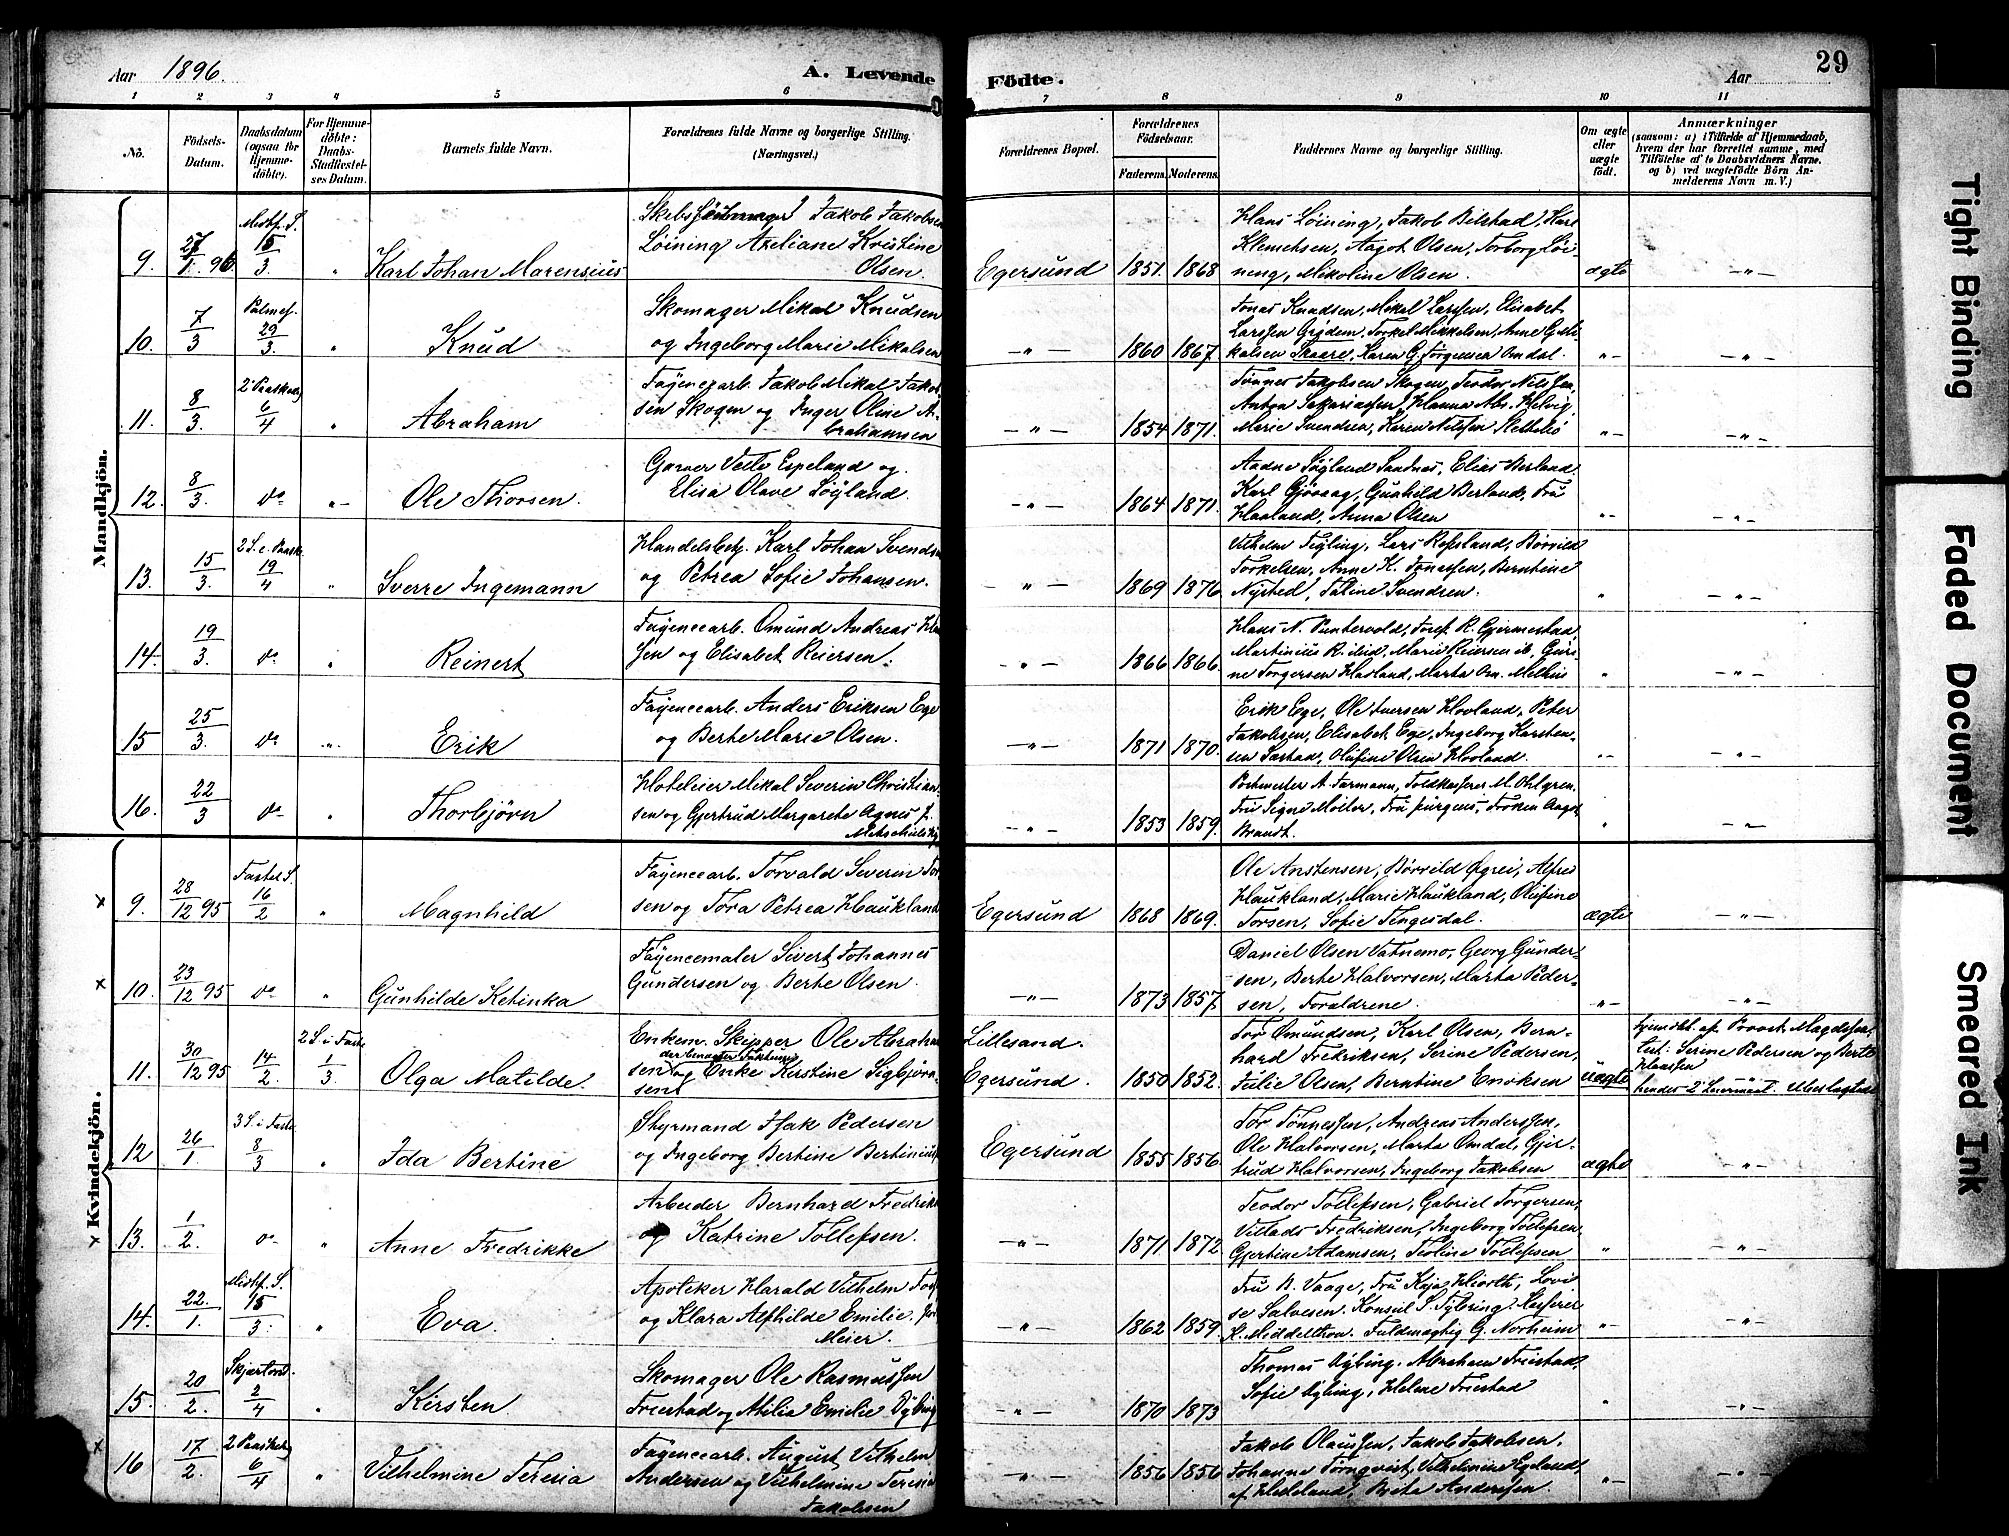 Aar 1896.
A. Levende Födte.
Aar
29
1 2 3 4 5 6 7 8 9 10 11
No.
Födsels-Datum.
Daabsdatum (ogsaa for Hjemme-döbte).
For Hjemme-döbte: Daabs-Stadfæstel-ses Datum.
Barnets fulde Navn.
Forældrenes fulde Navne og borgerlige Stilling. (Næringsvei.)
Forældrenes Bopæl.
Forældrenes Födselsaar.
Faderens. Moderens.
Faddernes Navne og borgerlige Stilling.
Om ægte eller uægte födt.
Anmærkninger
(saasom: a) i Tilfælde af Hjemmedaab, hvem der har forrettet samme, med Tilföielse af to Daabsvidners Navne. og b) ved uægtefödte Börn An-melderens Navn m. V.)
Mandkjön.
9. 27/1 96 Midtf. S. 15/3. " Karl Johan Marensius
Jakob Jakobsen
Löining Axeliane Kristine
Olsen.
Egersund 1851. 1868
Hans Löining, Jakob Bilstad,
Klemetsen, Aagot Olsen, Torborg Löi-
ning, Mikoline Olsen. ægte — " —
10. 7/3 Palmes. 29/3. " Knud
Skomager Mikal Knudsen
og Ingeborg Marie Mikalsen
— " — 1860 1867.
Jonas Knudsen, Mikal Larssen, Elisabet
Larssen Grödem, Torkel Mikkelsen, Anne G. Mi-
kalsen Skaare, Karen G. Jörgensen Omdal. " — — " —
11. 8/3. 2 Paaskedag 6/4 " Abraham
Fayencearb. Jakob Mikal Jakob-
sen Skogen og Inger Oline A-
brahamsen
— " — 1854 1871.
Tönnes Jakobsen Skogen, Teodor Nilssen,
Anton Sakariassen, Hanna Abr. Helvig,
Marie Svendsen, Karen Nilssen " — — " —
12. 8/3. do " — Ole Thorsen.
Garver Espeland og
Elisa Olave Söyland.
— " — 1864 1871.
Aadne Söyland Sandnes, Elias Berland
Karl Gjövaag, Gunhild Berland, Fru
Haaland, Anna Olsen " — — " —
13. 15/3. 2 S. e. Paaske 19/4 " Sverre Ingemann
Handelsbetj. Karl Johan Svendsen
og Petrea Sofie Johansen.
— " — 1869 1876
Vilhelm Feyling, Lars Rossland, Börsild
Torkelsen, Anne K. Jonassen, Berntine
Nysted, Taline Svendsen. " — " —
14. 19/3. do " Reinert
Fayencearb. Omund Andreas
sen og Elisabet Reiersen.
— " — 1866 1866.
Hans N. Puntervold, Josef R. Gjermestad,
Martinius R. ibid, Marie Reiersen ib, Guri-
ne Torgersen Havland, Marta Om. " — " —
15 25/3. do " Erik
Fayencearb. Anders Eriksen Ege
og Berte Marie Olsen.
— " — 1871 1870.
Erik Ege, Ole Iversen Hovland, Peter
Jakobsen, Elisabet Ege, Ingeborg Karsten-
sen Sæstad, Olufine Olsen Hovland. " — — " —
16. 22/3 do " Thorbjörn
Hoteleier Mikal Severin Christian-
sen og Gjertrud Margarete Agnes J.
— " — 1853 1859.
Postmester A. Tarmann, Toldkasserer M. Ohlgren,
Fru Signe Möller, Fru Jürgens, Fröken Aagot
Brandt. " — " —
Kvindekjön.
x 9. 28/12 95 Fastel. S. 16/2 " Magnhild
Fayencearb. Torvald Severin Tor-
sen og Tora Petrea Haukland
Egersund 1868 1869.
Ole Anstensen, Börsild Ögrei, Alfred
Haukland, Marie Haukland, Olufine
Torsen, Sofie Tengesdal. ægte — " —
x 10. 23/12 95 do " Gunhilde Ketinka
Fayencemaler Sivert Johannes
Gundersen og Berte Olsen.
— " — 1873 1857.
Daniel Olsen Vatnemo, Georg Gunder-
sen, Berte Halvorsen, Marta Peder-
sen, Forældrene. " — — " —
11. 30/12 95 14/2. 2 S. i Faste 1/3 Olga Matilde.
Enkem. Skipper Ole Abraham-
sen og Enke Kirstine Sigbjörn-
sen
Lillesand.
Egersund. 1850 1852.
Tor Omundsen, Karl Olsen, Bern-
hard Fredriksen, Serine Pedersen,
Julie Olsen, Berntine Eriksen uægte
hjemdbt. af Provst Magdesen.
test: Serine Pedersen og Berte
Klaassen
hendes 2' Leiermaal.
12 26/1. 3 S. i Faste 8/3 " Ida Bertine
Styrmand Isak Pedersen
og Ingeborg Bertine
Egersund 1855 1856.
Tor Tönnessen, Andreas Anderssen,
Ole Halvorsen, Marta Omdal, Gjer-
trud Halvorsen, Ingeborg Jakobsen ægte — " —
13. 1/2. do " Anne Fredrikke
Arbeider Bernhard Fredriks
og Katrine Tollefsen.
— " — 1871 1872
Teodor Tollefsen, Gabriel Torgersen,
Villads Fredriksen, Ingeborg Tollefsen,
Gjertine Adamsen, Teoline Tollefsen " — " —
14. 22/1. Midtf. S. 15/3. " Eva.
Apoteker Harald Vilhelm
og Klara Alfhilde Emilie
Meier.
— " — 1862 1859.
Fru B. Vaage, Fru Kaja Hiorth, Lovi-
se Salvesen. Konsul S. Sybring. Kasserer
K. Middelthon. Fuldmægtig G. Norheim " — — " —
15. 20/2. Skjærtorsd. 2/4 " Kirsten
Skomager Ole Rasmussen
Friestad og Atilia Emilie Dybing
— " — 1870 1873
Thomas Dybing, Abraham Friestad,
Sofie Dybing, Helene Friestad " — " —
x 16 17/2. 2 Paaskedag 6/4 " Vilhelmine Teresia
Fayencearb. August Vilhelm
Andersen og Vilhelmine Teresia
Jakobsen
— " — 1856 1856
Jakob Olaussen, Jakob Jakobsen,
Johanne Törnqvist, Vilhelmine Egeland,
af Helleland, Berta Anderssen. " — — " —
Tight Binding
Faded Document
Smeared Ink